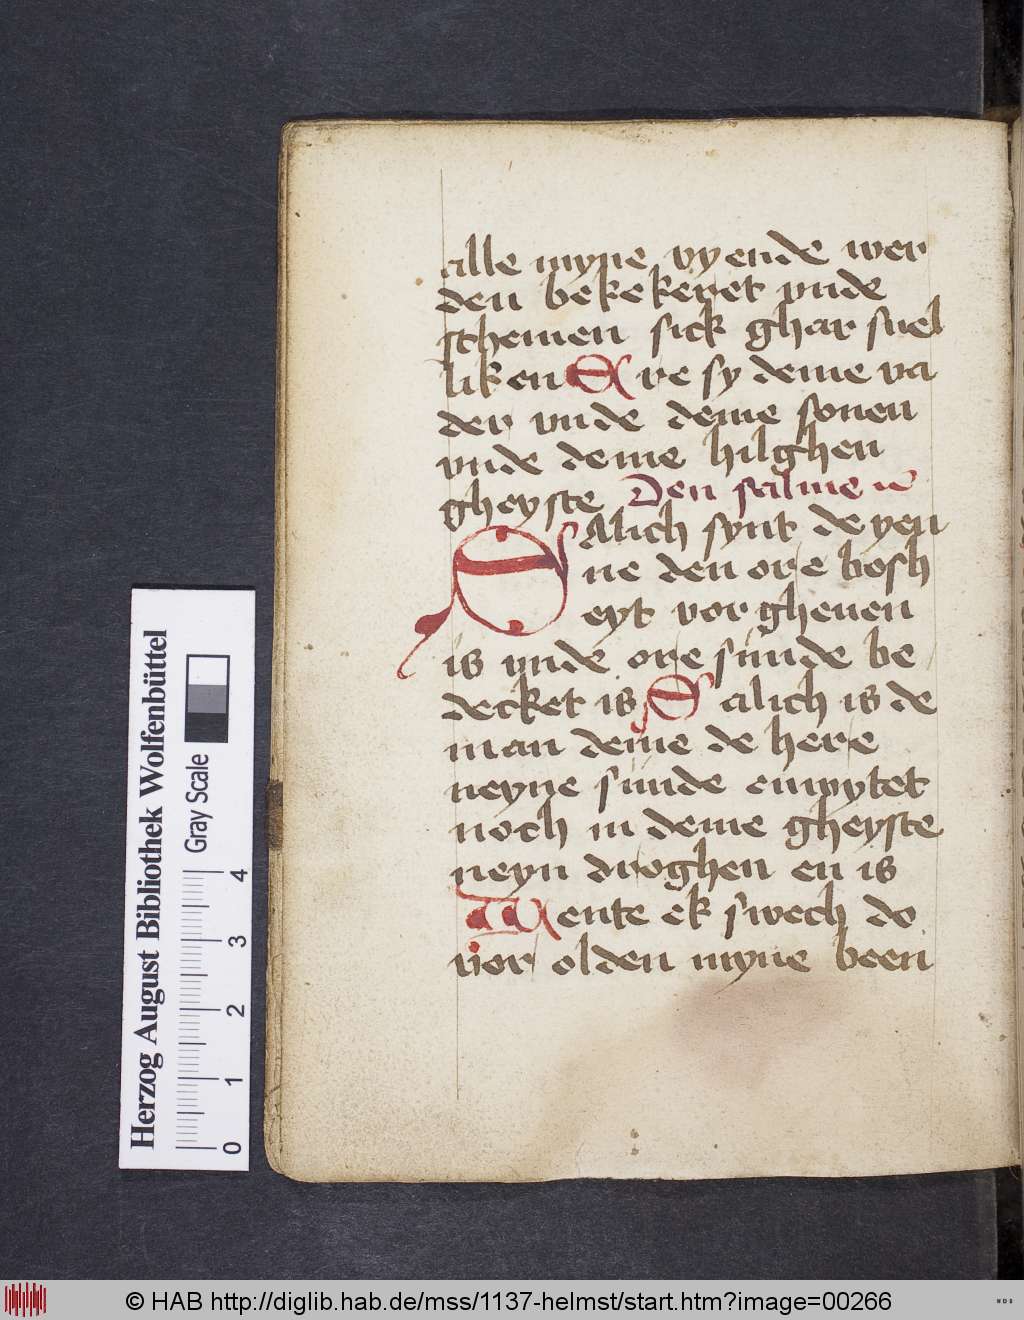 alle myne vyende wer
den bekekeret vnde
schemen sick ghar snel
liken Ere sy deme va
der vnde deme sonen
vnde deme hilghen
gheyste Den salme
Salich synt de yen
ne den ore bosh
eyt vorgheuen
is vnde ore sunde be
decket is Salich is de
man deme de here
neyne sunde empytet
noch in deme gheyste
neyn droghen en is
Wente ek swech do
vor olden myne been
Herzog August Bibliothek Wolfenbüttel
Gray Scale
0 1 2 3 4
© HAB http://diglib.hab.de/mss/1137-helmst/start.htm?image=00266